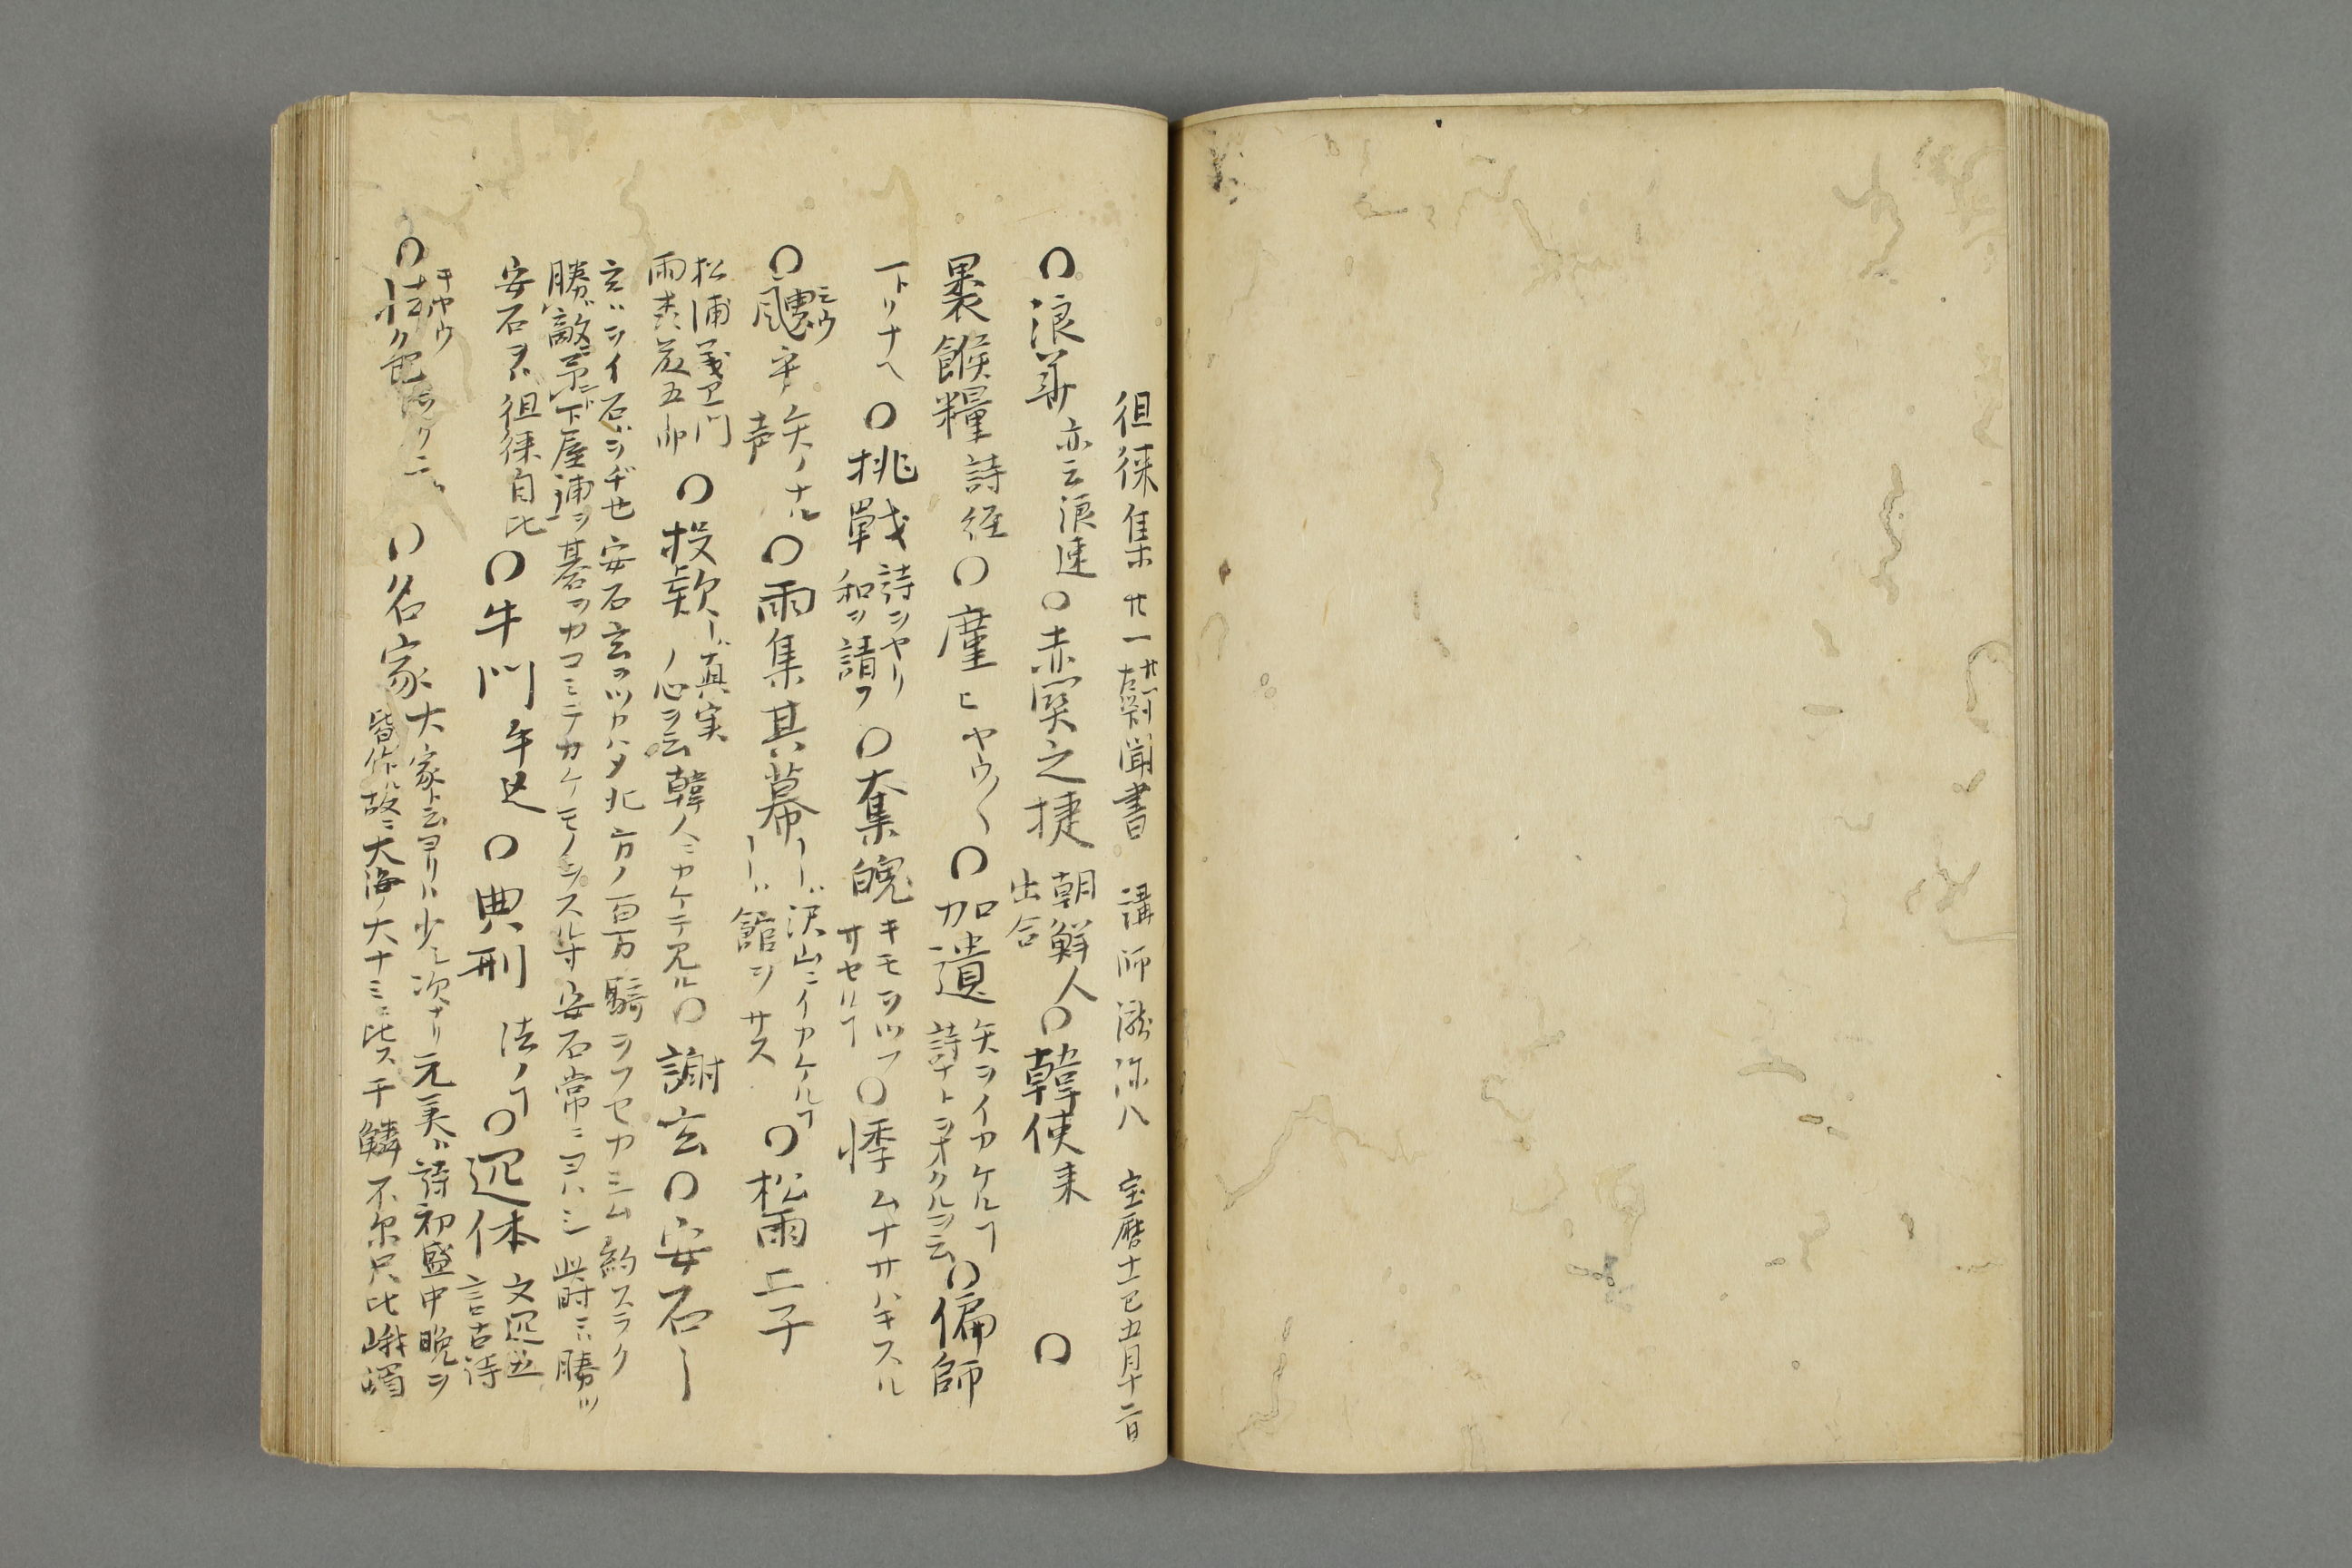 徂徠集廿一 聞書 講師 瀧弥八 宝暦十一巳五月十二日
〇浪華 亦云浪速 〇赤関之捷 朝鮮人出合 〇韓使来 〇
裹餱糧 詩経 〇 ヒヤウ〱 〇加遺 矢ヲイカケルヿ 詩ナトヲオクルヲ云 〇偏師
一トリナヘ 〇挑戦 詩ヲヤリ和ヲ請フ 〇奪魄 キモヲツフサセルヿ 〇悸 ムナサハキスル
〇 矢ノナル声 〇雨集其幕 沢山ニイカケルヿ 館ヲサス 〇松雨二子
松浦儀右衛門
雨森 五郎 〇投款 真実ノ心ヲ云 韓人ニカケテ見ル 〇謝玄 〇安石
玄ハヲイ石ハヲヂ也 安石玄ヲツカハタ北方ノ百万騎ヲフセカシム 約スラク
勝バ 敵ニ 下屋 ヲ碁ヲカコミテカケモノヲスル 安石常ニヨハシ 此時ニハ勝ツ
安石ヲハ徂徠自比 〇牛門 牛込 〇典刑 法ノヿ 〇近体 文近 言古詩
キヤウ
〇 〇名家 大家ト云ヨリハ少シ次ナリ 元美ハ詩初盛中晩ヲ
皆作ル故ニ大海ノ大ナミニ比ス 于鱗 不尓只比峨嵋